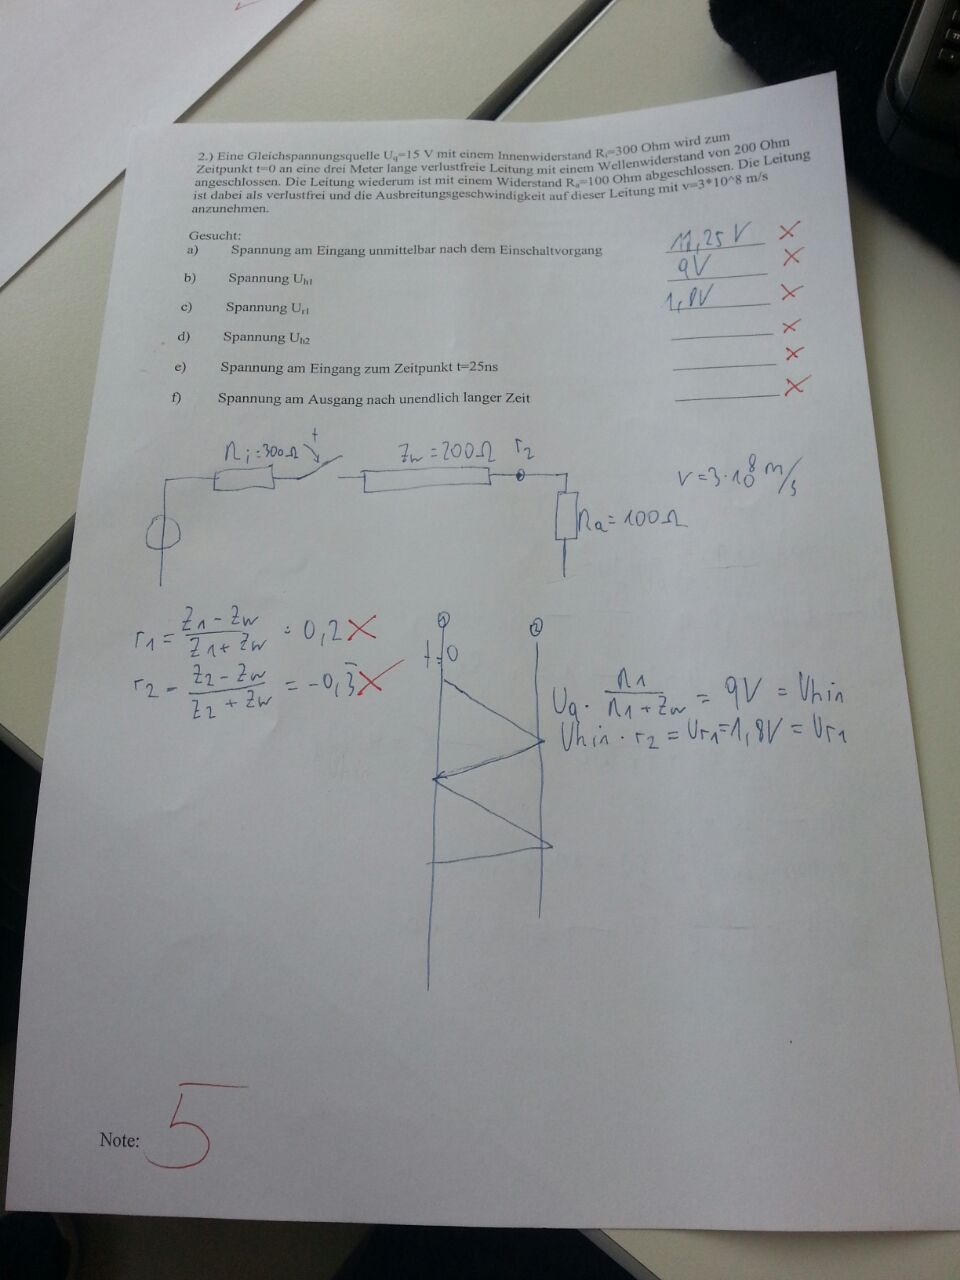 2.) Eine Gleichspannungsquelle Uq=15 V mit einem Innenwiderstand Ri=300 Ohm wird zum
Zeitpunkt t=0 an eine drei Meter lange verlustfreie Leitung mit einem Wellenwiderstand von 200 Ohm
angeschlossen. Die Leitung wiederum ist mit einem Widerstand Ra=100 Ohm abgeschlossen. Die Leitung
ist dabei als verlustfrei und die Ausbreitungsgeschwindigkeit auf dieser Leitung mit v=3*10^8 m/s
anzunehmen.
Gesucht:
a) Spannung am Eingang unmittelbar nach dem Einschaltvorgang 11,25 V
b) Spannung Uh1 9V
c) Spannung Ur1 1,8V
d) Spannung Uh2
e) Spannung am Eingang zum Zeitpunkt t=25ns
f) Spannung am Ausgang nach unendlich langer Zeit
Ri=300Ω t Zw=200Ω r2
v=3·10^8 m/s
Ra=100Ω
r1 = (Z1-Zw)/(Z1+Zw) = 0,2
r2 = (Z2-Zw)/(Z2+Zw) = -0,3̅
1 2
t=0
Uq · R1/(R1+Zw) = 9V = Uhin
Uhin · r2 = Ur1=1,8V = Ur1
Note: 5